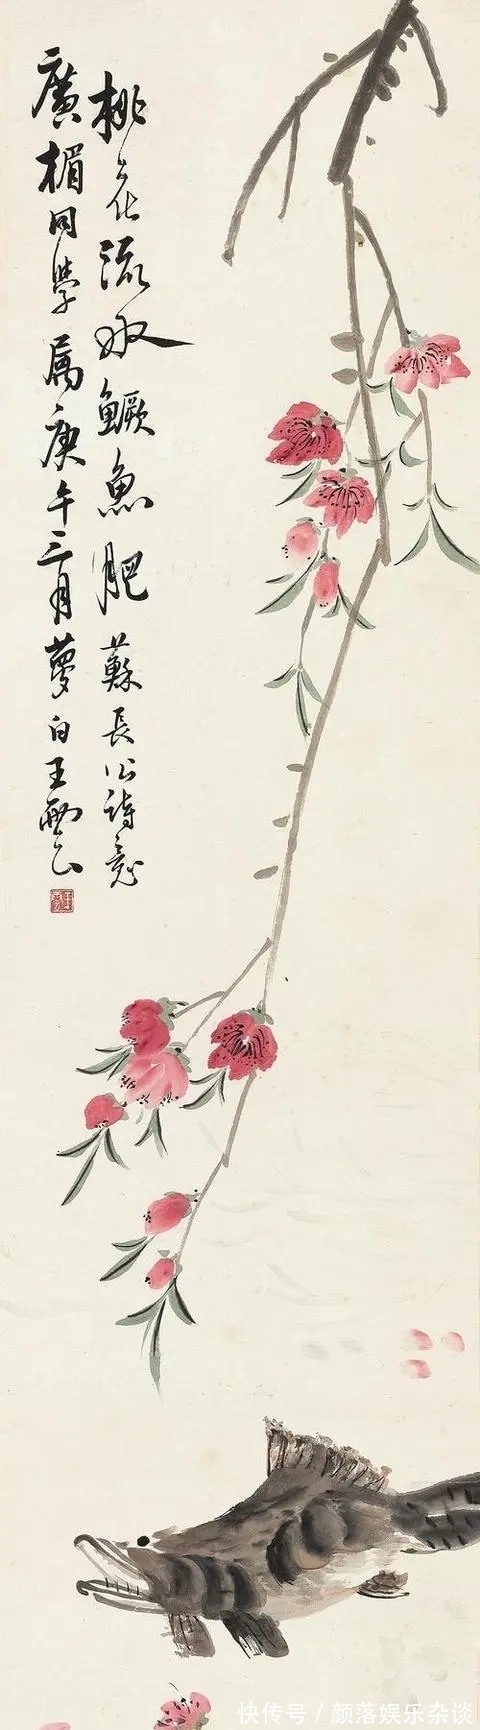 桃花流水鱖魚肥 蘇長公詩意
廣楣同學属庚午三月夢白王雲
快传号 / 颜落娱乐杂谈